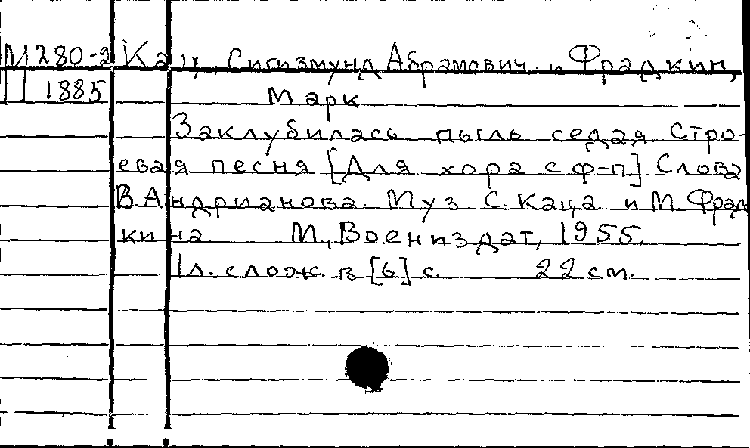 М280-2 Кац, Сигизмунд Абрамович и Фрадкин,
II 1885 Марк
Заклубилась пыль седая Стро-
евая песня [Для хора с ф-п] Слова
В. Андрианова. Муз С. Каца и М. Фрад
кина М., Воениздат, 1955.
1 л. слож. в [6] с. 22 см.